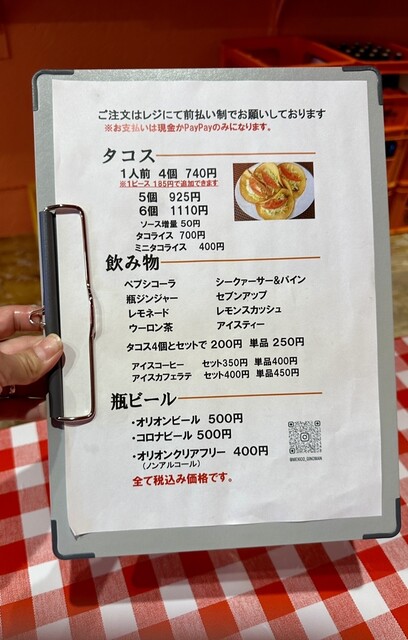 ご注文はレジにて前払い制でお願いしております
※お支払いは現金かPayPayのみになります。
タコス
1人前 4個 740円
※1ピース 185円で追加できます
5個 925円
6個 1110円
ソース増量 50円
タコライス 700円
ミニタコライス 400円
飲み物
ペプシコーラ シークァーサー&パイン
瓶ジンジャー セブンアップ
レモネード レモンスカッシュ
ウーロン茶 アイスティー
タコス4個とセットで 200円 単品 250円
アイスコーヒー セット350円 単品400円
アイスカフェラテ セット400円 単品450円
瓶ビール
・オリオンビール 500円
・コロナビール 500円
・オリオンクリアフリー 400円
(ノンアルコール)
全て税込み価格です。